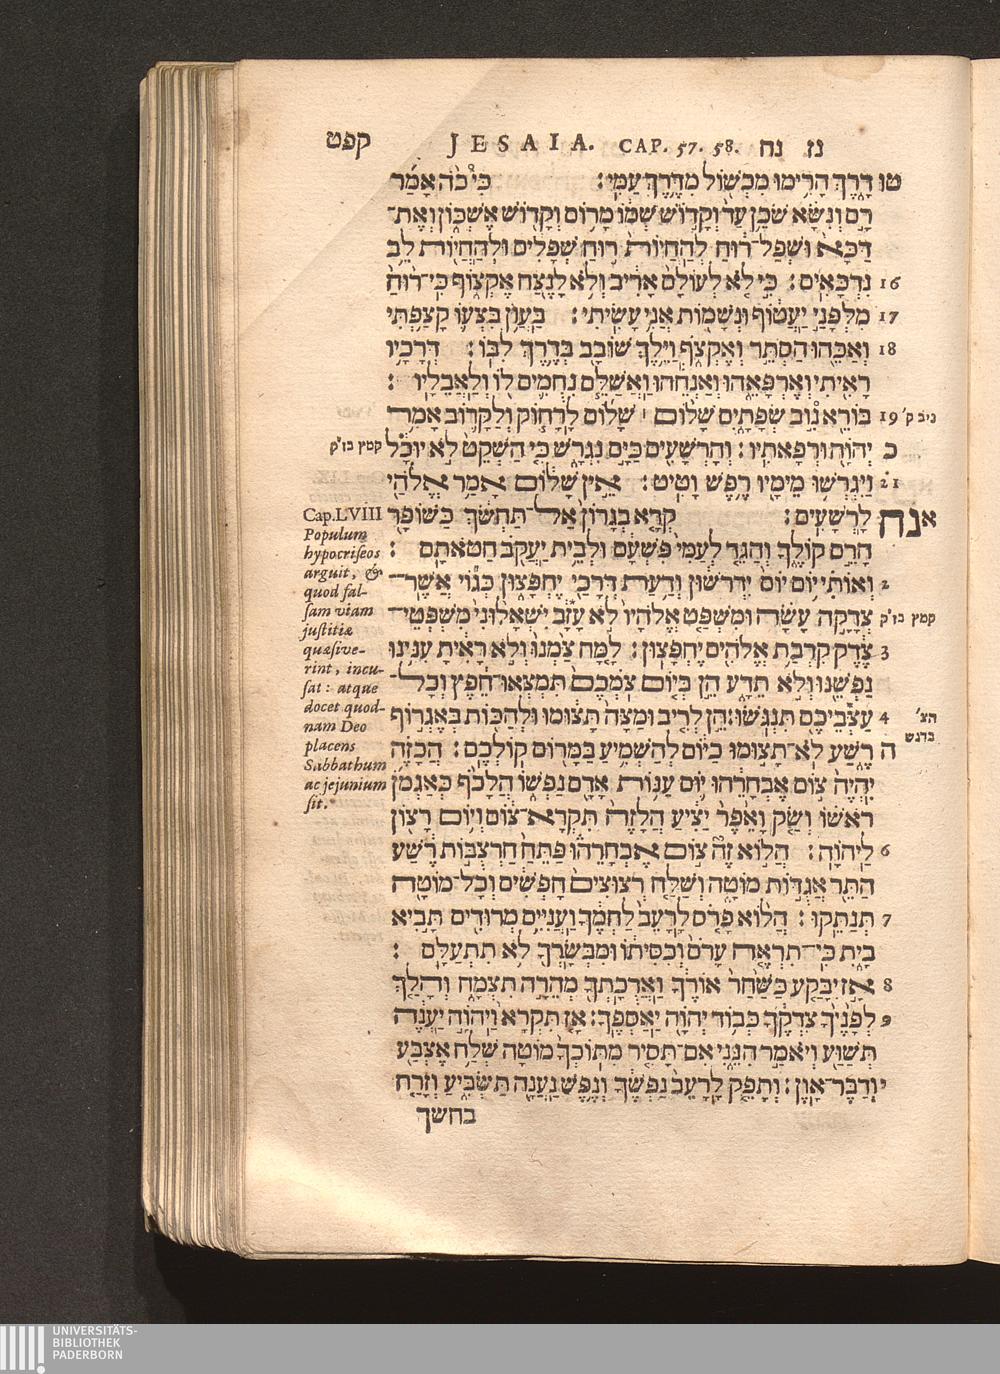 קפט JESAIA. CAP. 57. 58. נז נח
טו דֶּרֶךְ הָרִימוּ מִכְשׁוֹל מִדֶּרֶךְ עַמִּי׃ כִּי כֹה אָמַר
רָם וְנִשָּׂא שֹׁכֵן עַד וְקָדוֹשׁ שְׁמוֹ מָרוֹם וְקָדוֹשׁ אֶשְׁכּוֹן וְאֶת־
דַּכָּא וּשְׁפַל־רוּחַ לְהַחֲיוֹת רוּחַ שְׁפָלִים וּלְהַחֲיוֹת לֵב
16 נִדְכָּאִים׃ כִּי לֹא לְעוֹלָם אָרִיב וְלֹא לָנֶצַח אֶקְצוֹף כִּי־רוּחַ
17 מִלְּפָנַי יַעֲטוֹף וּנְשָׁמוֹת אֲנִי עָשִׂיתִי׃ בַּעֲוֹן בִּצְעוֹ קָצַפְתִּי
18 וְאַכֵּהוּ הַסְתֵּר וְאֶקְצֹף וַיֵּלֶךְ שׁוֹבָב בְּדֶרֶךְ לִבּוֹ׃ דְּרָכָיו
רָאִיתִי וְאֶרְפָּאֵהוּ וְאַנְחֵהוּ וַאֲשַׁלֵּם נִחֻמִים לוֹ וְלַאֲבֵלָיו׃
ניב ק׳ 19 בּוֹרֵא נוֹב שְׂפָתָיִם שָׁלוֹם ׀ שָׁלוֹם לָרָחוֹק וְלַקָּרוֹב אָמַר
כ יְהוָה וּרְפָאתִיו׃ וְהָרְשָׁעִים כַּיָּם נִגְרָשׁ כִּי הַשְׁקֵט לֹא יוּכָל קמץ בז״ק
21 וַיִּגְרְשׁוּ מֵימָיו רֶפֶשׁ וָטִיט׃ אֵין שָׁלוֹם אָמַר אֱלֹהַי
א נח לָרְשָׁעִים׃ קְרָא בְגָרוֹן אַל־תַּחְשֹׂךְ כַּשּׁוֹפָר
הָרֵם קוֹלֶךָ וְהַגֵּד לְעַמִּי פִּשְׁעָם וּלְבֵית יַעֲקֹב חַטֹּאתָם׃
2 וְאוֹתִי יוֹם יוֹם יִדְרֹשׁוּן וְדַעַת דְּרָכַי יֶחְפָּצוּן כְּגוֹי אֲשֶׁר־
קמץ בז״ק צְדָקָה עָשָׂה וּמִשְׁפַּט אֱלֹהָיו לֹא עָזָב יִשְׁאָלוּנִי מִשְׁפְּטֵי־
3 צֶדֶק קִרְבַת אֱלֹהִים יֶחְפָּצוּן׃ לָמָּה צַּמְנוּ וְלֹא רָאִיתָ עִנִּינוּ
נַפְשֵׁנוּ וְלֹא תֵדָע הֵן בְּיוֹם צֹמְכֶם תִּמְצְאוּ־חֵפֶץ וְכָל־
הצ׳ בדגש 4 עַצְּבֵיכֶם תִּנְגֹּשׂוּ׃ הֵן לְרִיב וּמַצָּה תָּצוּמוּ וּלְהַכּוֹת בְּאֶגְרוֹף
ה רֶשַׁע לֹא־תָצוּמוּ כַיּוֹם לְהַשְׁמִיעַ בַּמָּרוֹם קוֹלְכֶם׃ הֲכָזֶה
יִהְיֶה צוֹם אֶבְחָרֵהוּ יוֹם עַנּוֹת אָדָם נַפְשׁוֹ הֲלָכֹף כְּאַגְמֹן
רֹאשׁוֹ וְשַׂק וָאֵפֶר יַצִּיעַ הֲלָזֶה תִּקְרָא־צוֹם וְיוֹם רָצוֹן
6 לַיהוָה׃ הֲלוֹא זֶה צוֹם אֶבְחָרֵהוּ פַּתֵּחַ חַרְצֻבּוֹת רֶשַׁע
הַתֵּר אֲגֻדּוֹת מוֹטָה וְשַׁלַּח רְצוּצִים חָפְשִׁים וְכָל־מוֹטָה
7 תְּנַתֵּקוּ׃ הֲלוֹא פָרֹס לָרָעֵב לַחְמֶךָ וַעֲנִיִּים מְרוּדִים תָּבִיא
בָיִת כִּי־תִרְאֶה עָרֹם וְכִסִּיתוֹ וּמִבְּשָׂרְךָ לֹא תִתְעַלָּם׃
8 אָז יִבָּקַע כַּשַּׁחַר אוֹרֶךָ וַאֲרֻכָתְךָ מְהֵרָה תִצְמָח וְהָלַךְ
9 לְפָנֶיךָ צִדְקֶךָ כְּבוֹד יְהוָה יַאַסְפֶךָ׃ אָז תִּקְרָא וַיהוָה יַעֲנֶה
תְּשַׁוַּע וְיֹאמַר הִנֵּנִי אִם־תָּסִיר מִתּוֹכְךָ מוֹטָה שְׁלַח אֶצְבַּע
י וְדַבֶּר־אָוֶן׃ וְתָפֵק לָרָעֵב נַפְשֶׁךָ וְנֶפֶשׁ נַעֲנָה תַּשְׂבִּיעַ וְזָרַח
בחשך
Cap. LVIII
Populum
hypocriseos
arguit, &
quod fal-
sam viam
justitiæ
quæsive-
rint, incu-
sat: atque
docet quod-
nam Deo
placens
Sabbathum
ac jejunium
sit.
UNIVERSITÄTS-
BIBLIOTHEK
PADERBORN